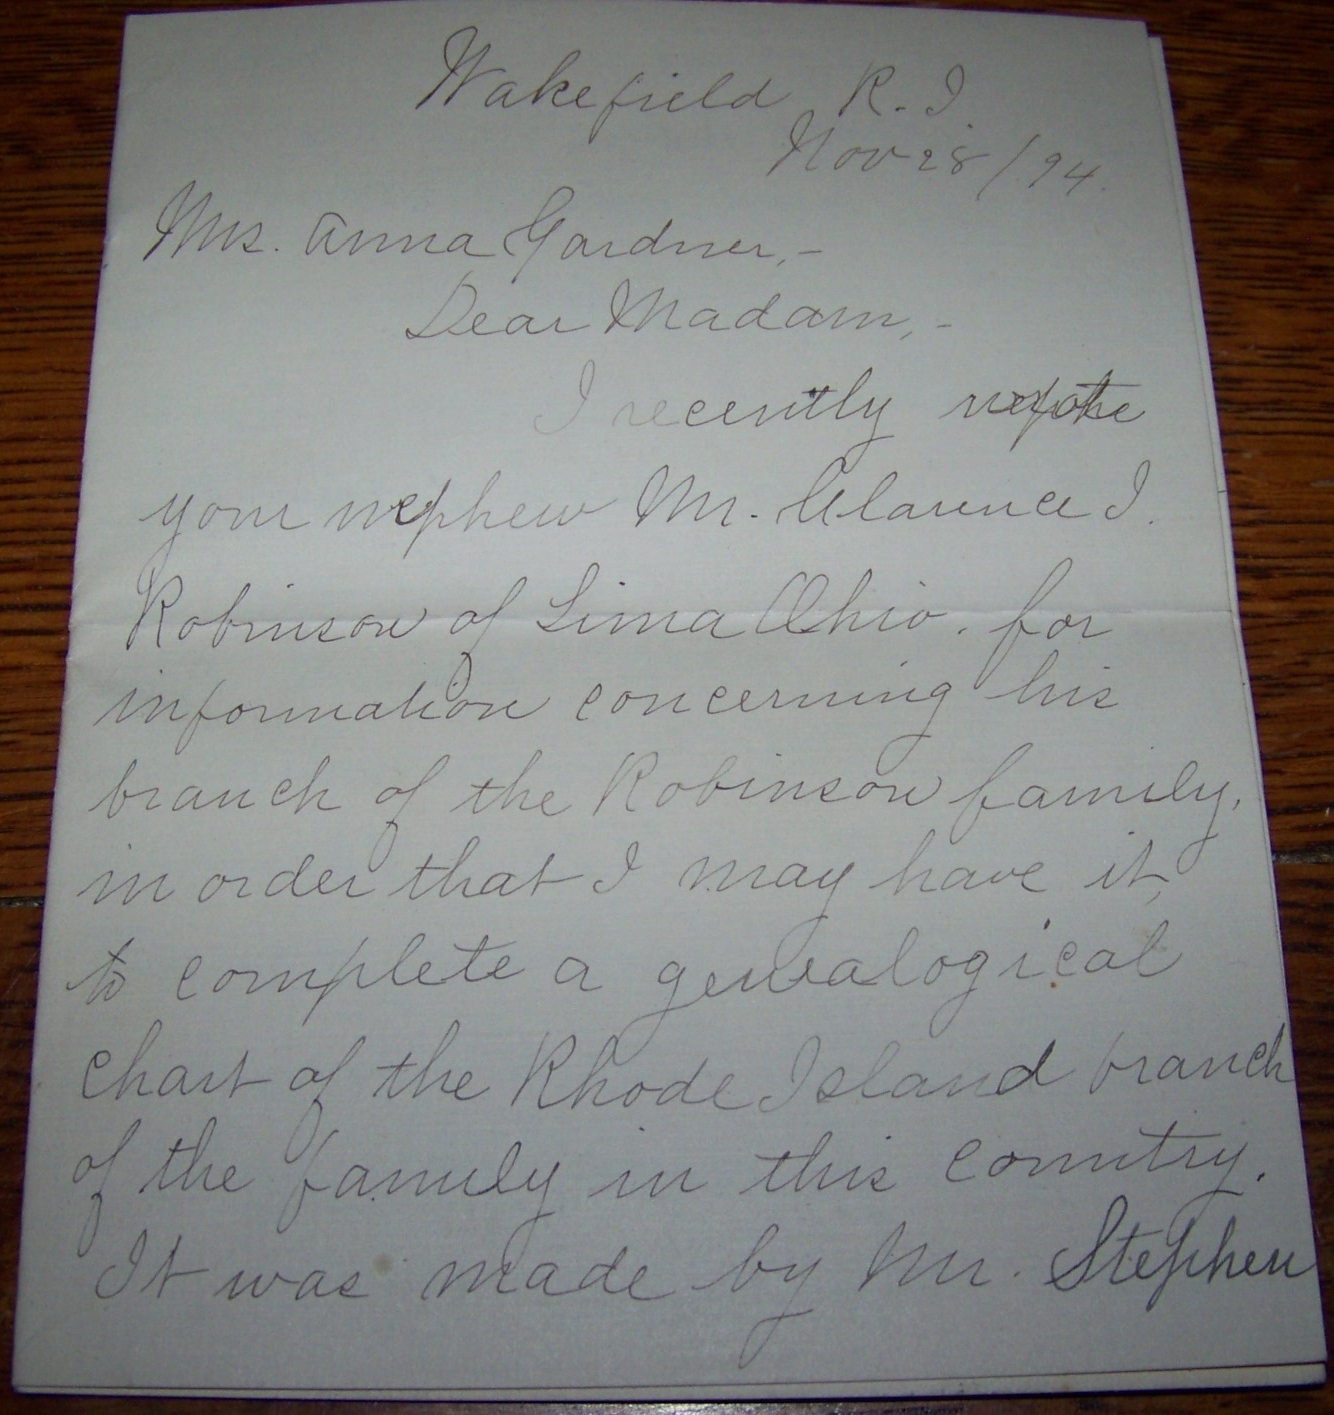 Wakefield R. I.
Nov 28/94.
Mrs. Anna Gardner,-
Dear Madam,-
I recently wrote
your nephew Mr. Clarence I.
Robinson of Lima Ohio. for
information concerning his
branch of the Robinson family,
in order that I may have it,
to complete a genealogical
chart of the Rhode Island branch
of the family in this country.
It was made by Mr. Stephen